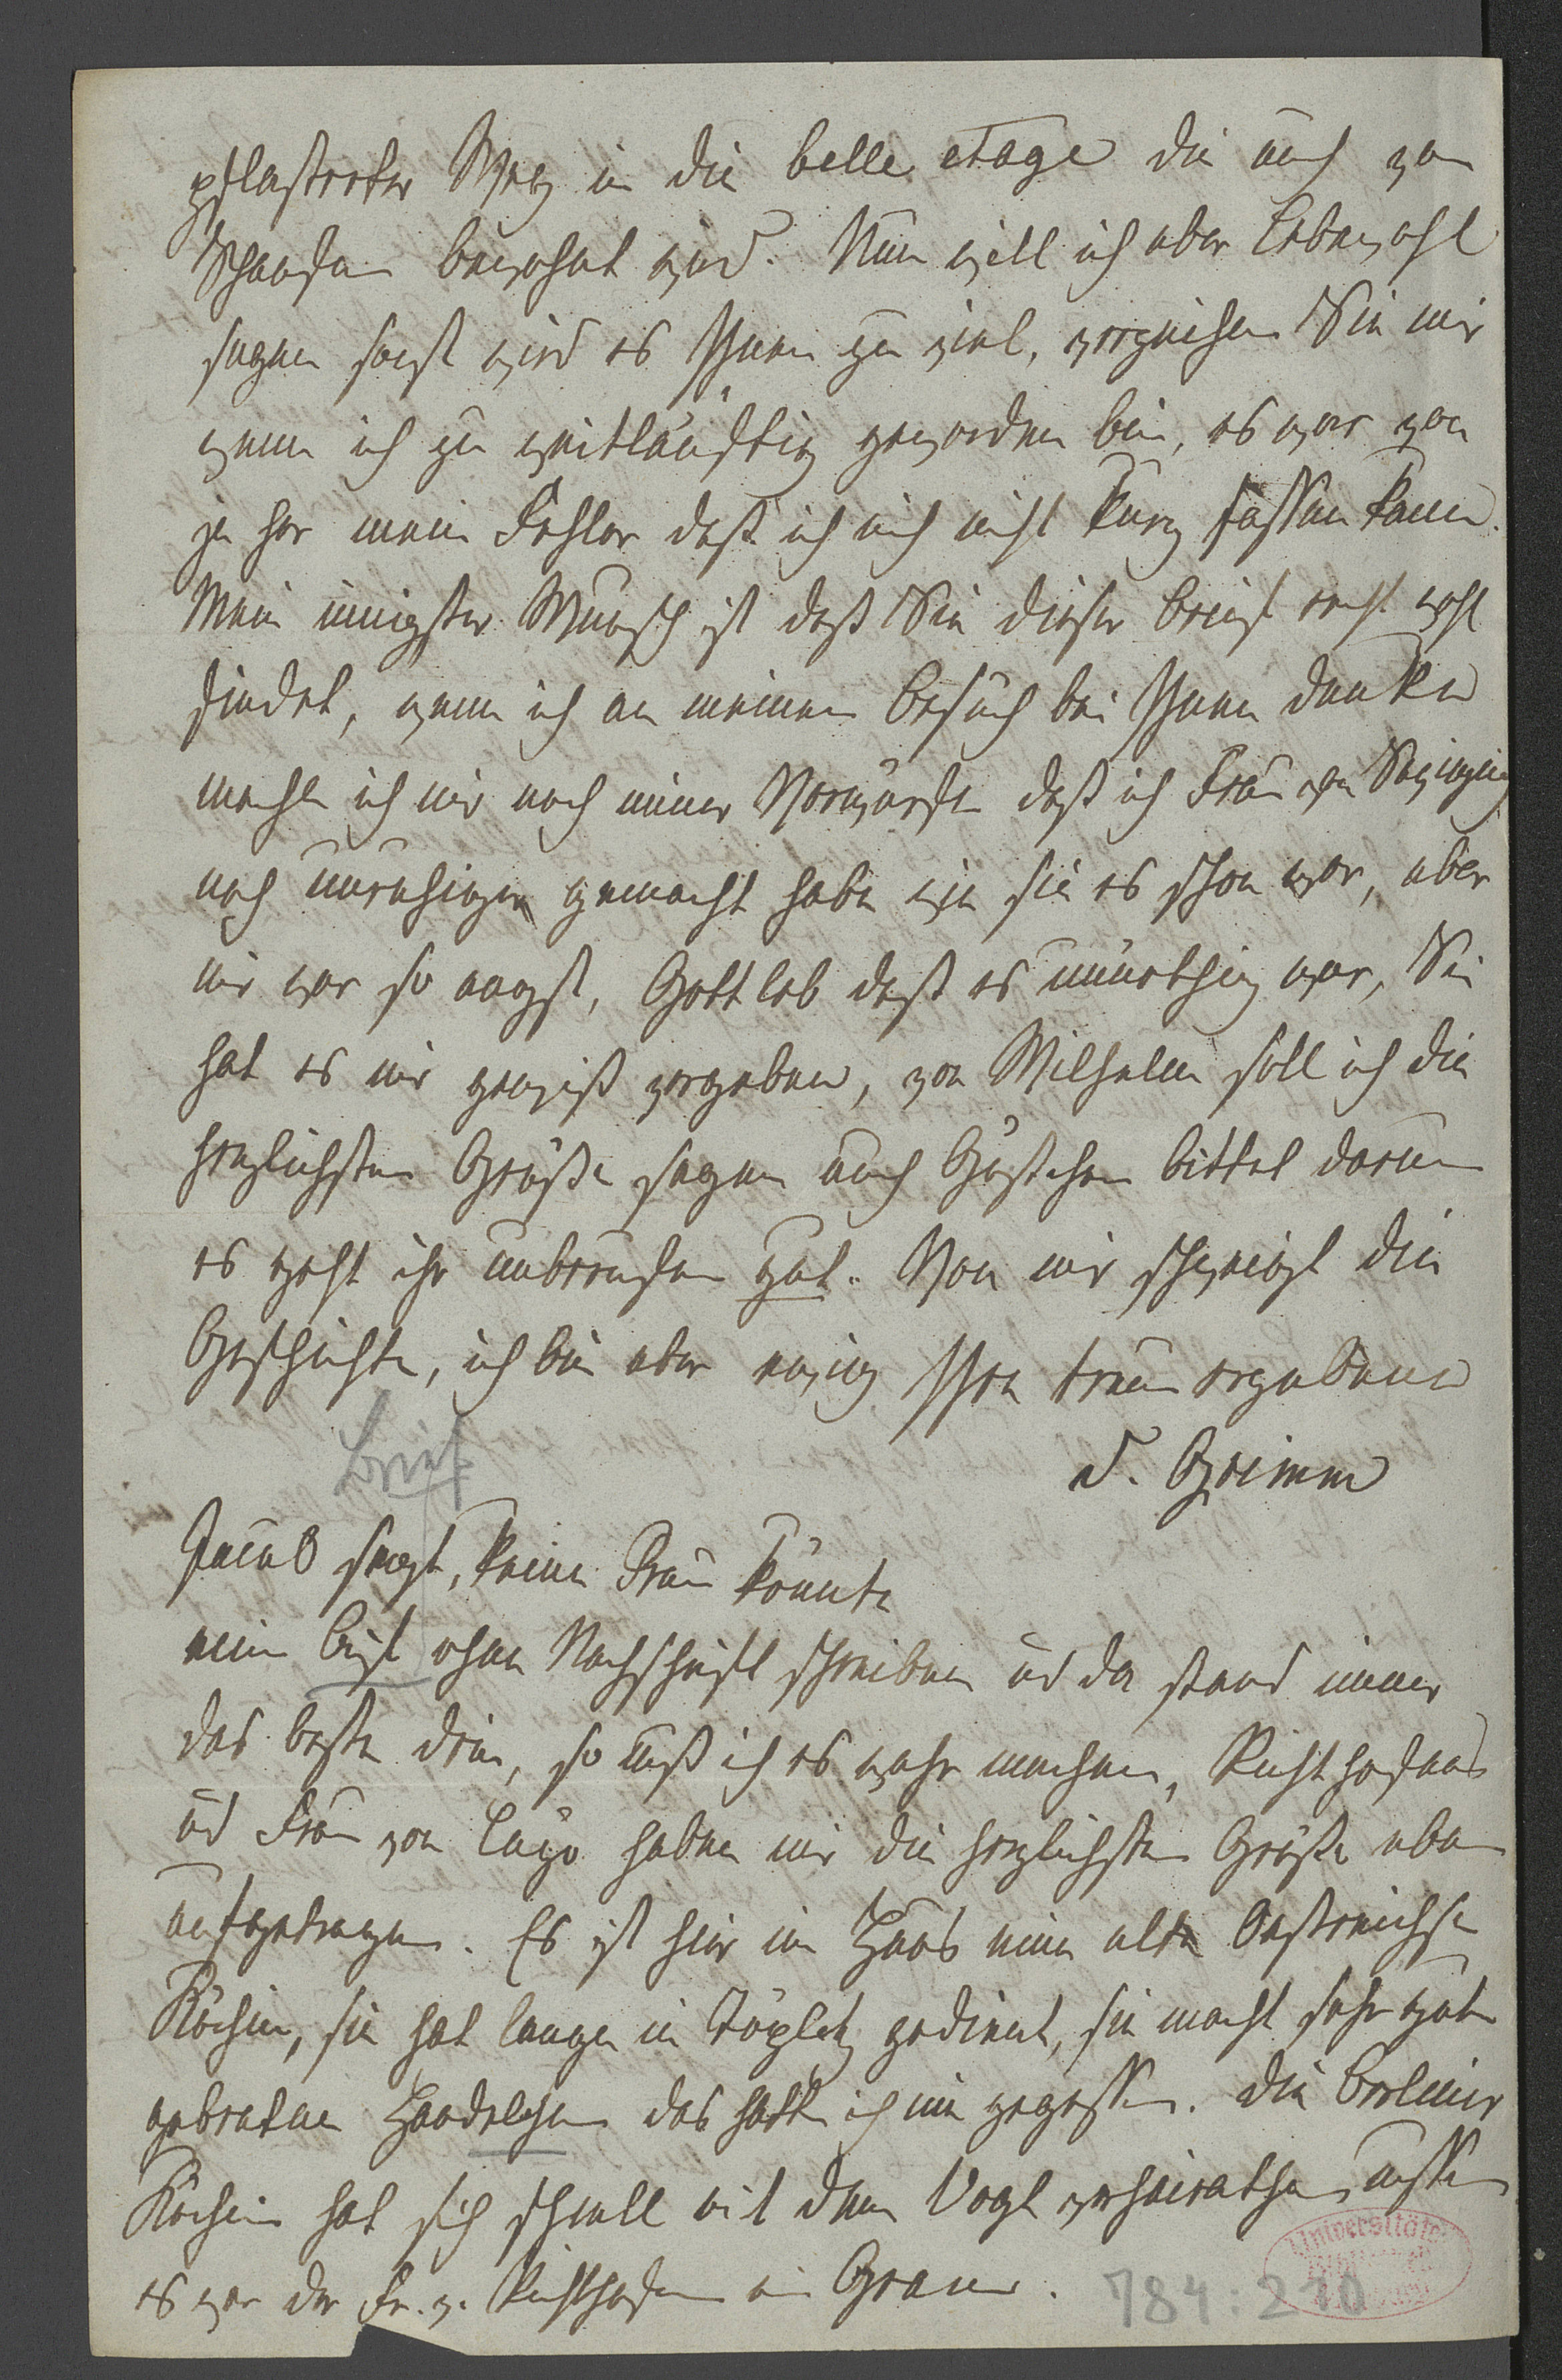 pflasterter Weg in die belle etage die auch von
Schaafen bewohnt wird. Nun will ich aber Lebewohl
sagen sonst wird es Ihnen zu viel, verzeihen Sie mir
wenn ich zu weitläuftig geworden bin, es war von
je her mein Fehler daß ich mich nicht kurz fassen kann.
Mein innigster Wunsch ist daß Sie dieser Brief recht wohl
findet, wenn ich an meinen Besuch bei Ihnen denke
mache ich mir noch immer Vorwürfe daß ich Frau von
noch unruhiger gemacht habe wie sie es schon war, aber
mir war so angst, Gottlob daß es unnöthig war, Sie
hat es mir gewiß vergeben, von Wilhelm soll ich die
herzlichsten Grüße sagen auch Gustchen bittet darum
es geht ihr unberufen gut. Von mir schweigt die
Geschichte, ich bin aber ewig Ihre treu ergebene
D. Grimm
Brief
Jacob sagt, keine Frau könnte
einen Brief ohne Nachschrift schreiben und da stand immer
das beste drin, so muß ich es wahr machen, Richthofens
und Frau von haben mir die herzlichsten Grüße eben
aufgetragen. Es ist hier im Haus eine alte Oestreichsche
Köchin, sie hat lange in Töplitz gedient, sie macht sehr gute
gebratene das hatte ich nie gegessen. die Berliner
Köchin hat sich schnell mit dem Vogt verheirathen müssen
es war der Fr. v. Richthofen ein Gram.
784:210
Universitäts
Bibliothek